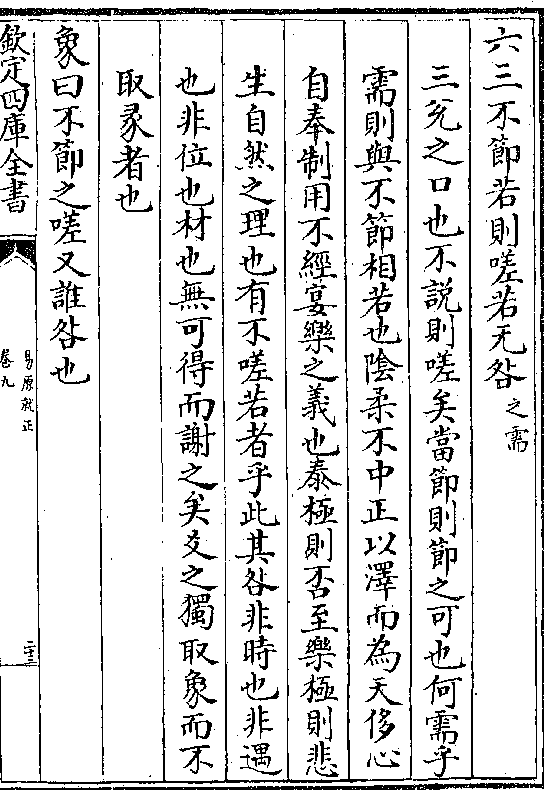 六三不節若則嗟若无咎之需
三兊之口也不說則嗟矣當節則節之可也何需乎
需則與不節相若也陰柔不中正以澤而為天侈心
自奉制用不經宴樂之義也泰極則否至樂極則悲
生自然之理也有不嗟若者乎此其咎非時也非遇
也非位也材也無可得而謝之矣爻之獨取象而不
取彖者也
象曰不節之嗟又誰咎也
欽定四庫全書
易原就正
卷九
二十三